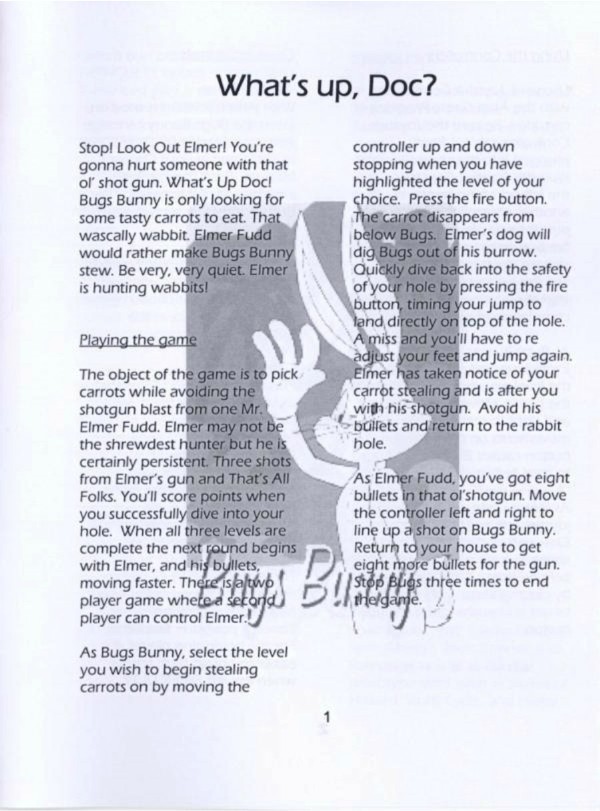 What's up, Doc?
Stop! Look Out Elmer! You're
gonna hurt someone with that
ol' shot gun. What's Up Doc!
Bugs Bunny is only looking for
some tasty carrots to eat. That
wascally wabbit. Elmer Fudd
would rather make Bugs Bunny
stew. Be very, very quiet. Elmer
is hunting wabbits!
Playing the game
The object of the game is to pick
carrots while avoiding the
shotgun blast from one Mr.
Elmer Fudd. Elmer may not be
the shrewdest hunter but he is
certainly persistent. Three shots
from Elmer's gun and That's All
Folks. You'll score points when
you successfully dive into your
hole. When all three levels are
complete the next round begins
with Elmer, and his bullets,
moving faster. There is a two
player game where a second
player can control Elmer.!
As Bugs Bunny, select the level
you wish to begin stealing
carrots on by moving the
controller up and down
stopping when you have
highlighted the level of your
choice. Press the fire button.
The carrot disappears from
below Bugs. Elmer's dog will
dig Bugs out of his burrow.
Quickly dive back into the safety
of your hole by pressing the fire
button, timing your jump to
land directly on top of the hole.
A miss and you'll have to re
adjust your feet and jump again.
Elmer has taken notice of your
carrot stealing and is after you
with his shotgun. Avoid his
bullets and return to the rabbit
hole.
As Elmer Fudd, you've got eight
bullets in that ol'shotgun. Move
the controller left and right to
line up a shot on Bugs Bunny.
Return to your house to get
eight more bullets for the gun.
Stop Bugs three times to end
the game.
Bugs Bunny
1